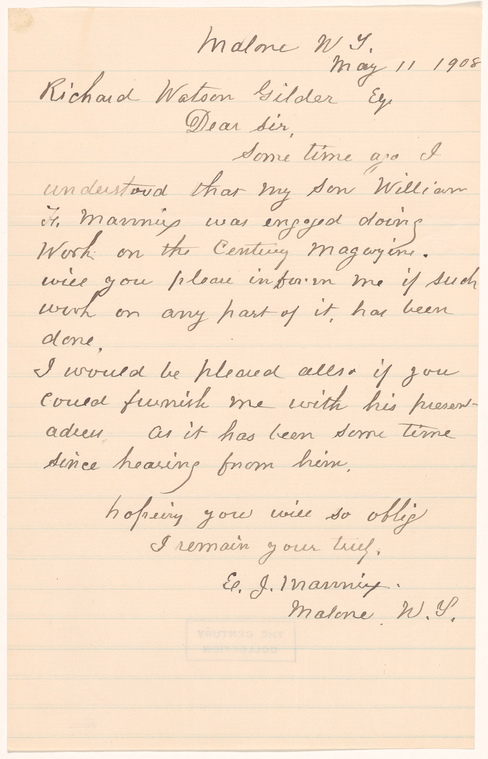 Malone N Y.
May 11 1908
Richard Watson Gilder Esq
Dear Sir,
Some time ago I
understood that my son William
F. Mannix was engaged doing
Work on the Century Magazine.
will you please inform me if such
work on any part of it, has been
done,
I would be pleased allso if you
could furnish me with his present
adress As it has been some time
since hearing from him.
hopeing you will so oblig
I remain your truly.
E. J. Mannix.
Malone N. Y.
THE CENTURY
COLLECTION